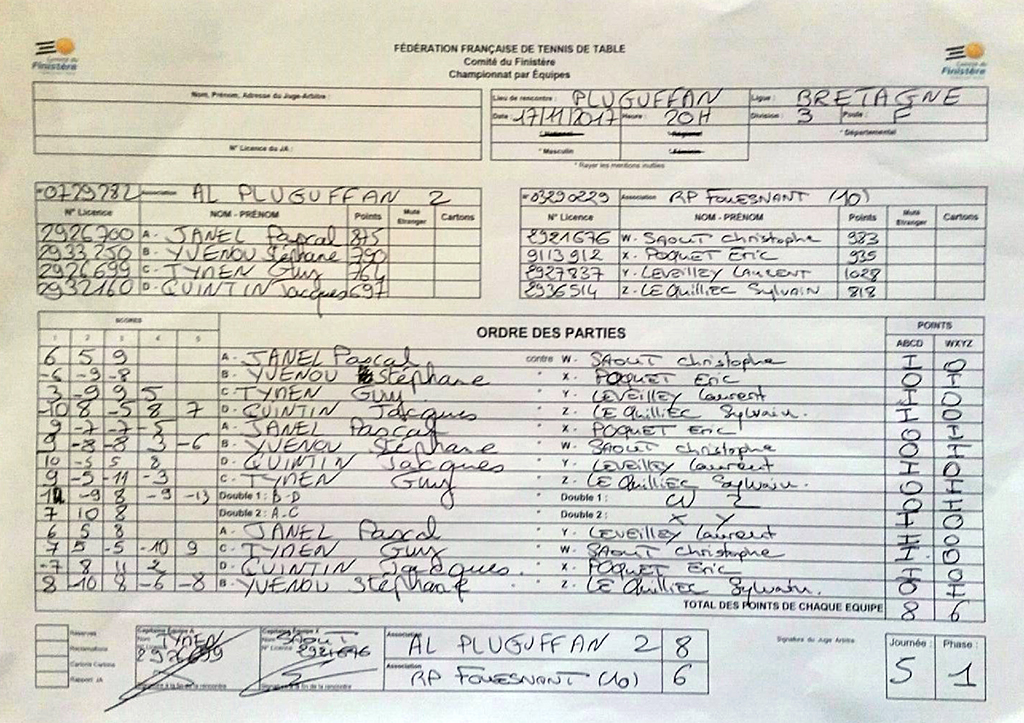 Comité du Finistère
FÉDÉRATION FRANÇAISE DE TENNIS DE TABLE
Comité du Finistère
Championnat par Équipes
Comité du Finistère
Nom, Prénom, Adresse du Juge-Arbitre :
N° Licence du JA :
Lieu de rencontre : PLUGUFFAN Ligue : BRETAGNE
Date : 17/11/2017 Heure : 20H Division : 3 Poule : F
* National * Régional * Départemental
* Masculin * Féminin
* Rayer les mentions inutiles
N° 0729282 Association AL PLUGUFFAN 2
N° Licence NOM - PRÉNOM Points Muté Etranger Cartons
2926700 A - JANEL Pascal 875
2933250 B - YVENOU Stéphane 790
2926699 C - TYMEN Guy 764
2932160 D - QUINTIN Jacques 697
N° 03290229 Association RP FOUESNANT (10)
N° Licence NOM - PRÉNOM Points Muté Etranger Cartons
2921676 W - SAOUT Christophe 983
9113912 X - POQUET Eric 935
2927837 Y - LEVEILLEY Laurent 1028
2936514 Z - LE Quilliec Sylvain 818
SCORES ORDRE DES PARTIES POINTS
1 2 3 4 5 ABCD WXYZ
6 5 9 A - JANEL Pascal contre W - SAOUT Christophe 1 0
-6 -9 -8 B - YVENOU Stéphane " X - POQUET Eric 0 1
3 -9 9 5 C - TYMEN Guy " Y - LEVEILLEY Laurent 1 0
-10 8 -5 8 7 D - QUINTIN Jacques " Z - LE Quilliec Sylvain. 1 0
9 -7 -7 -5 A - JANEL Pascal " X - POQUET Eric 0 1
9 -8 -8 3 -6 B - YVENOU Stéphane " W - SAOUT Christophe 0 1
10 -5 5 8 D - QUINTIN Jacques " Y - LEVEILLEY Laurent 1 0
9 -5 -11 -3 C - TYMEN Guy " Z - LE Quilliec Sylvain. 0 1
-9 8 -9 -13 Double 1 : B-D " Double 1 : W Z 0 1
7 10 8 Double 2 : A-C " Double 2 : X Y 1 0
6 5 8 A - JANEL Pascal " Y - LEVEILLEY Laurent 1 0
7 5 -5 -10 9 C - TYMEN Guy " W - SAOUT Christophe 1 0
-7 8 11 2 D - QUINTIN Jacques. " X - POQUET Eric 1 0
8 -10 8 -6 -8 B - YVENOU Stéphane " Z - LE Quilliec Sylvain. 0 1
TOTAL DES POINTS DE CHAQUE EQUIPE 8 6
Réserves
Réclamations
Cartons Cartons
Rapport JA
Capitaine Équipe A
Nom TYMEN
N° Licence 2926699
Signature à la fin de la rencontre
Capitaine Équipe X
Nom SAOUT
N° Licence 2921676
Signature à la fin de la rencontre
Association AL PLUGUFFAN 2 8
Association RP FOUESNANT (10) 6
Signature du Juge Arbitre
Journée : 5
Phase : 1